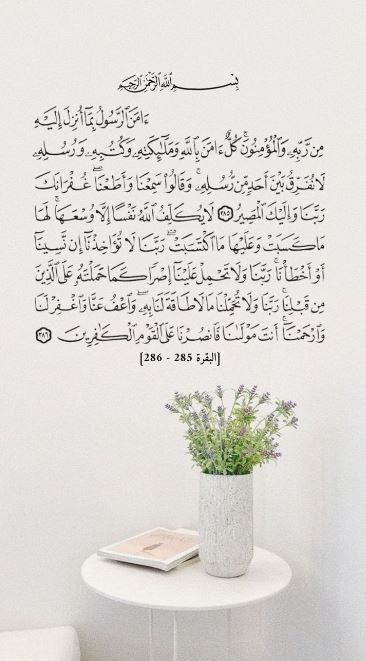 بِسْمِ ٱللَّهِ ٱلرَّحْمَٰنِ ٱلرَّحِيمِ
ءَامَنَ ٱلرَّسُولُ بِمَآ أُنزِلَ إِلَيْهِ
مِن رَّبِّهِۦ وَٱلْمُؤْمِنُونَ ۚ كُلٌّ ءَامَنَ بِٱللَّهِ وَمَلَٰٓئِكَتِهِۦ وَكُتُبِهِۦ وَرُسُلِهِۦ
لَا نُفَرِّقُ بَيْنَ أَحَدٍ مِّن رُّسُلِهِۦ ۚ وَقَالُوا۟ سَمِعْنَا وَأَطَعْنَا ۖ غُفْرَانَكَ
رَبَّنَا وَإِلَيْكَ ٱلْمَصِيرُ ٢٨٥ لَا يُكَلِّفُ ٱللَّهُ نَفْسًا إِلَّا وُسْعَهَا ۚ لَهَا
مَا كَسَبَتْ وَعَلَيْهَا مَا ٱكْتَسَبَتْ ۗ رَبَّنَا لَا تُؤَاخِذْنَآ إِن نَّسِينَآ
أَوْ أَخْطَأْنَا ۚ رَبَّنَا وَلَا تَحْمِلْ عَلَيْنَآ إِصْرًا كَمَا حَمَلْتَهُۥ عَلَى ٱلَّذِينَ
مِن قَبْلِنَا ۚ رَبَّنَا وَلَا تُحَمِّلْنَا مَا لَا طَاقَةَ لَنَا بِهِۦ ۖ وَٱعْفُ عَنَّا وَٱغْفِرْ لَنَا
وَٱرْحَمْنَآ ۚ أَنتَ مَوْلَىٰنَا فَٱنصُرْنَا عَلَى ٱلْقَوْمِ ٱلْكَٰفِرِينَ ٢٨٦
[البقرة 285 - 286]